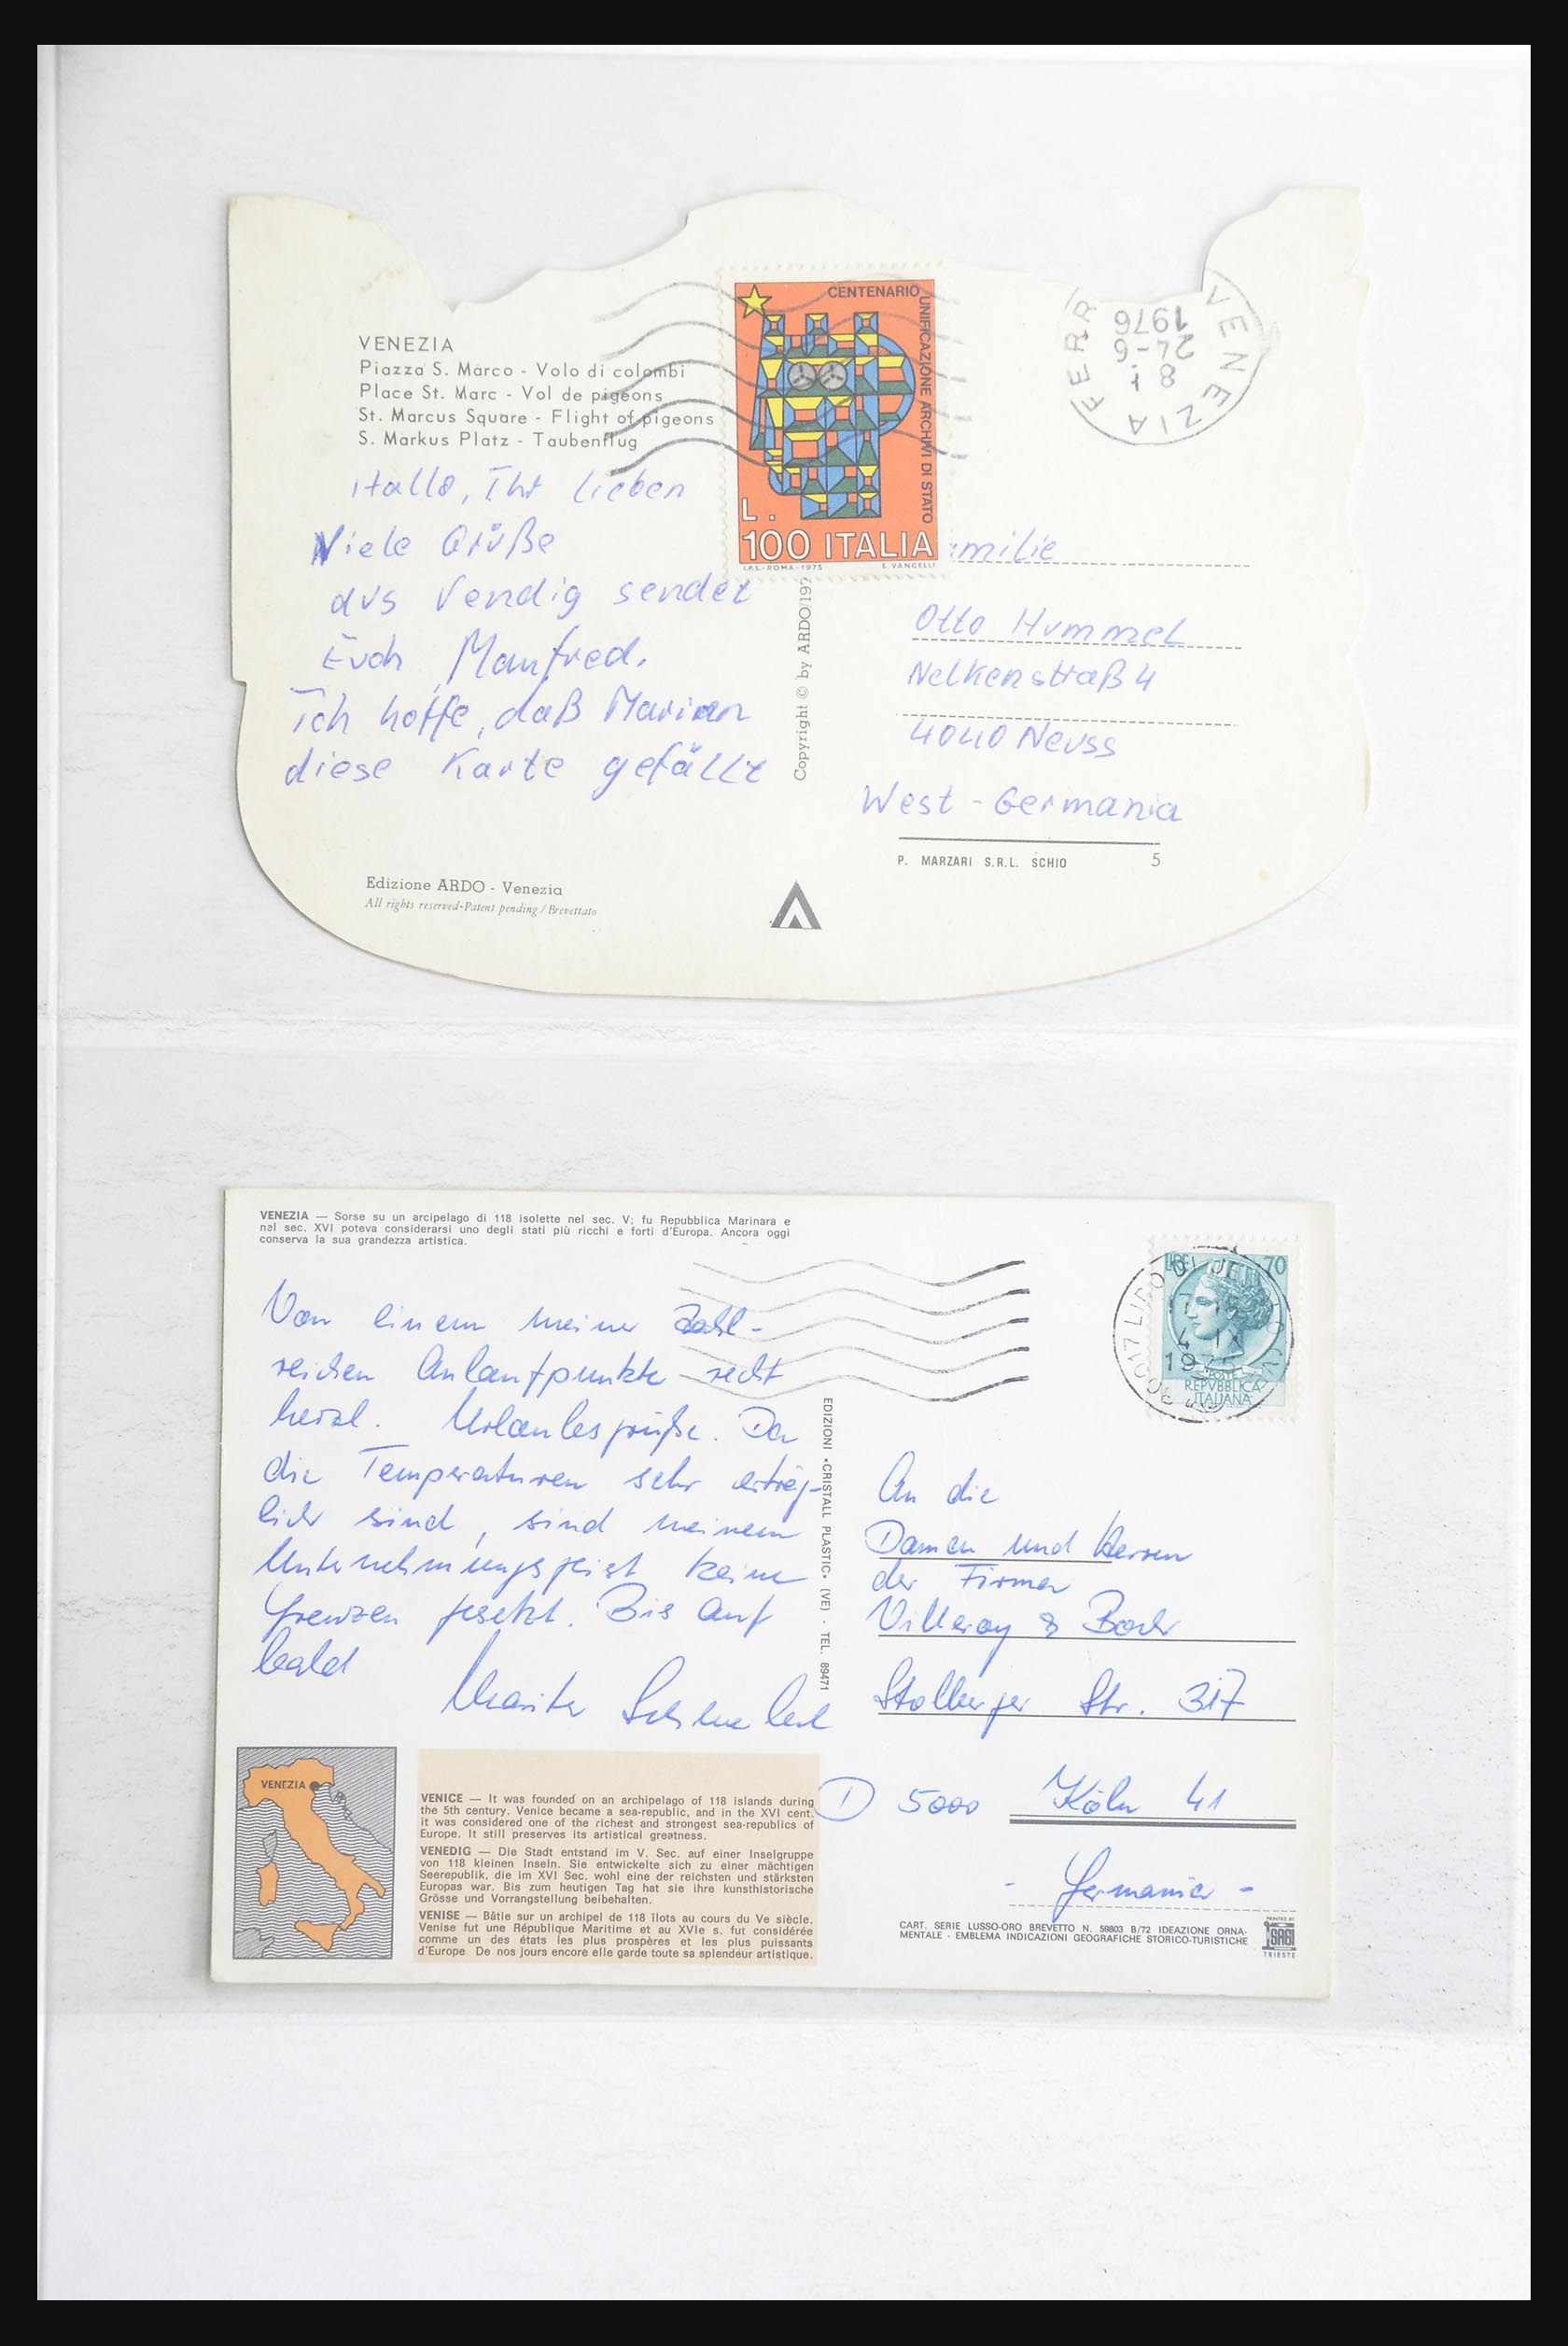 VENEZIA
Piazza S. Marco - Volo di colombi
Place St. Marc - Vol de pigeons
St. Marcus Square - Flight of pigeons
S. Markus Platz - Taubenflug
Hallo, Ihr lieben
Viele Grüße
aus Vendig sendet
Euch Manfred.
Ich hoffe, daß Marian
diese Karte gefällt
Edizione ARDO - Venezia
All rights reserved-Patent pending / Brevettato
Copyright © by ARDO/197
CENTENARIO
UNIFICAZIONE ARCHIVI DI STATO
L.
100 ITALIA
I.P.S.-ROMA-1975 E. VANGELLI
VENEZIA FERR
8
24-6
1976
amilie
Otto Hummel
Nelkenstraß 4
4040 Neuss
West - Germania
P. MARZARI S.R.L. SCHIO 5
VENEZIA — Sorse su un arcipelago di 118 isolette nel sec. V; fu Repubblica Marinara e
nel sec. XVI poteva considerarsi uno degli stati più ricchi e forti d'Europa. Ancora oggi
conserva la sua grandezza artistica.
Von einem meiner zahl-
reichen Anlaufpunkte recht
herzl. Urlaubsgrüße. Da
die Temperaturen sehr erträg-
lich sind, sind meinem
Unternehmungsgeist keine
Grenzen gesetzt. Bis auf
bald
EDIZIONI «CRISTALL PLASTIC» (VE) - TEL. 89471
LIRE 70
POSTE
REPVBBLICA
ITALIANA
30017 LIDO DI JESOLO
An die
Damen und Herren
der Firma
Villeroy & Boch
Stolberger Str. 317
5000 Köln 41
- Germania -
VENEZIA
VENICE — It was founded on an archipelago of 118 islands during
the 5th century. Venice became a sea-republic, and in the XVI cent.
it was considered one of the richest and strongest sea-republics of
Europe. It still preserves its artistical greatness.
VENEDIG — Die Stadt entstand im V. Sec. auf einer Inselgruppe
von 118 kleinen Inseln. Sie entwickelte sich zu einer mächtigen
Seerepublik, die im XVI Sec. wohl eine der reichsten und stärksten
Europas war. Bis zum heutigen Tag hat sie ihre kunsthistorische
Grösse und Vorrangstellung beibehalten.
VENISE — Bâtie sur un archipel de 118 îlots au cours du Ve siècle,
Venise fut une République Maritime et au XVIe s. fut considérée
comme un des états les plus prospères et les plus puissants
d'Europe. De nos jours encore elle garde toute sa splendeur artistique.
CART. SERIE LUSSO-ORO BREVETTO N. 59803 B/72 IDEAZIONE ORNA-
MENTALE - EMBLEMA INDICAZIONI GEOGRAFICHE STORICO-TURISTICHE
PRINTED BY
SAGI
TRIESTE